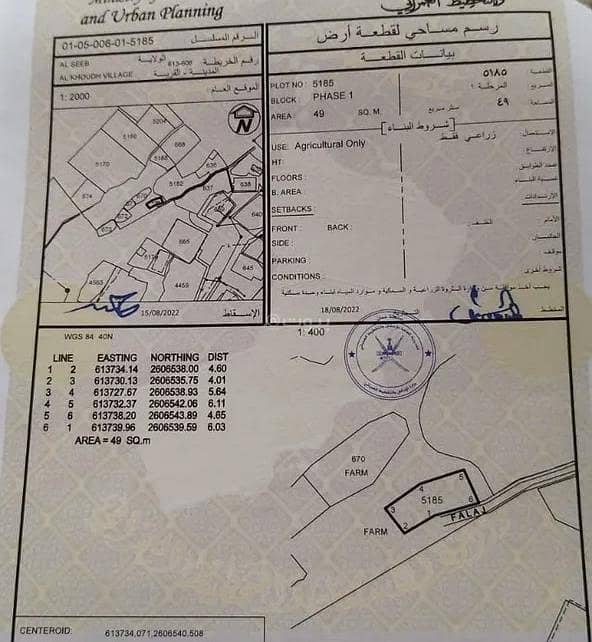 and Urban Planning
رسم مساحي لقطعة أرض
بيانات القطعة
01-05-006-01-5185 الرقم المسلسل
AL SEEB 613-606 الولاية رقم الخريطة
AL KHOUDH VILLAGE المدينة - القرية
1: 2000 الموقع العام
PLOT NO : 5185 ٥١٨٥
BLOCK : PHASE 1 المرحلة ١ المربع
AREA : 49 SQ. M. متر مربع ٤٩ المساحة
[شروط البناء]
USE: Agricultural Only زراعي فقط الإستعمال
HT: الإرتفاع
FLOORS : عدد الطوابق
B. AREA : نسبة البناء
SETBACKS : الإرتدادات
FRONT : BACK : الخلف الأمام
SIDE : الجانبان
PARKING : مواقف
CONDITIONS : شروط أخرى
5204
5186
668
5170
5188
636
674
5182
637
638
673
640
665
5174
645
4583
4459
15/08/2022 الإسقاط
18/08/2022 المخطط
WGS 84 40N
1: 400
LINE EASTING NORTHING DIST
1 2 613734.14 2606538.00 4.60
2 3 613730.13 2606535.75 4.01
3 4 613727.67 2606538.93 5.64
4 5 613732.37 2606542.06 6.11
5 6 613738.20 2606543.89 4.65
6 1 613739.96 2606539.59 6.03
AREA = 49 SQ.m
670
FARM
5
4
5185
3
6
1
2
FARM
FALAJ
CENTEROID: 613734,071,2606540.508